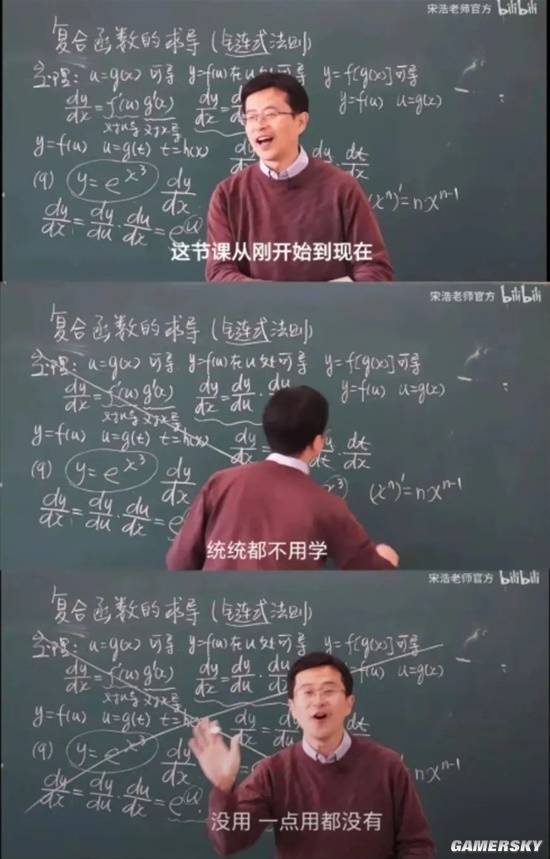 宋浩老师官方 bilibili
复合函数的求导(链式法则)
定理: u=g(x) 可导 y=f(u)在u处可导 y=f[g(x)]可导
dy/dx=f'(u)g'(x) dy/dx= y=f(u) u=g(x)
对u导 对x导
y=f(u) u=g(t) t=h(x) dy/dx dy/du·dt/dx
(9) y=e^x³ dy/dx (xⁿ)'=n·xⁿ⁻¹
dy/dx=dy/du·du/dx=e^u
这节课从刚开始到现在
宋浩老师官方 bilibili
复合函数的求导(链式法则)
定理: u=g(x) 可导 y=f(u)在u处可导 y=f[g(x)]可导
dy/dx=f'(u)g'(x) dy/dx=dy/du·du y=f(u) u=g(x)
对u导 对x导
y=f(u) u=g(t) t=h(x) dy/dx= ·dt/dx
(9) y=e^x³ dy/dx (xⁿ)'=n·xⁿ⁻¹
dy/dx=dy/du·du/dx=e
统统都不用学
宋浩老师官方 bilibili
复合函数的求导(链式法则)
定理: u=g(x) 可导 y=f(u)在u处可导 y=f[g(x)]可导
dy/dx=f'(u)g'(x) dy/dx=dy/du·du =f(u) u=g(x)
对u导 对x导
y=f(u) u=g(t) dy/dx= dt/dx
(9) y=e^x³ dy/dx =n·xⁿ⁻¹
dy/dx=dy/du·du/dx=e^u
没用 一点用都没有
GAMERSKY